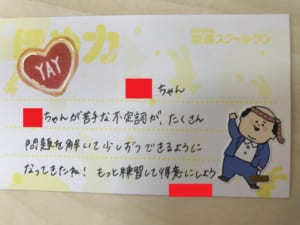 ほめ力
筑進スクールワン
YAY
ちゃん
ちゃんが苦手な不定詞が、たくさん
問題を解いて少しずつできるように
なってきたね! もっと練習して得意にしよう